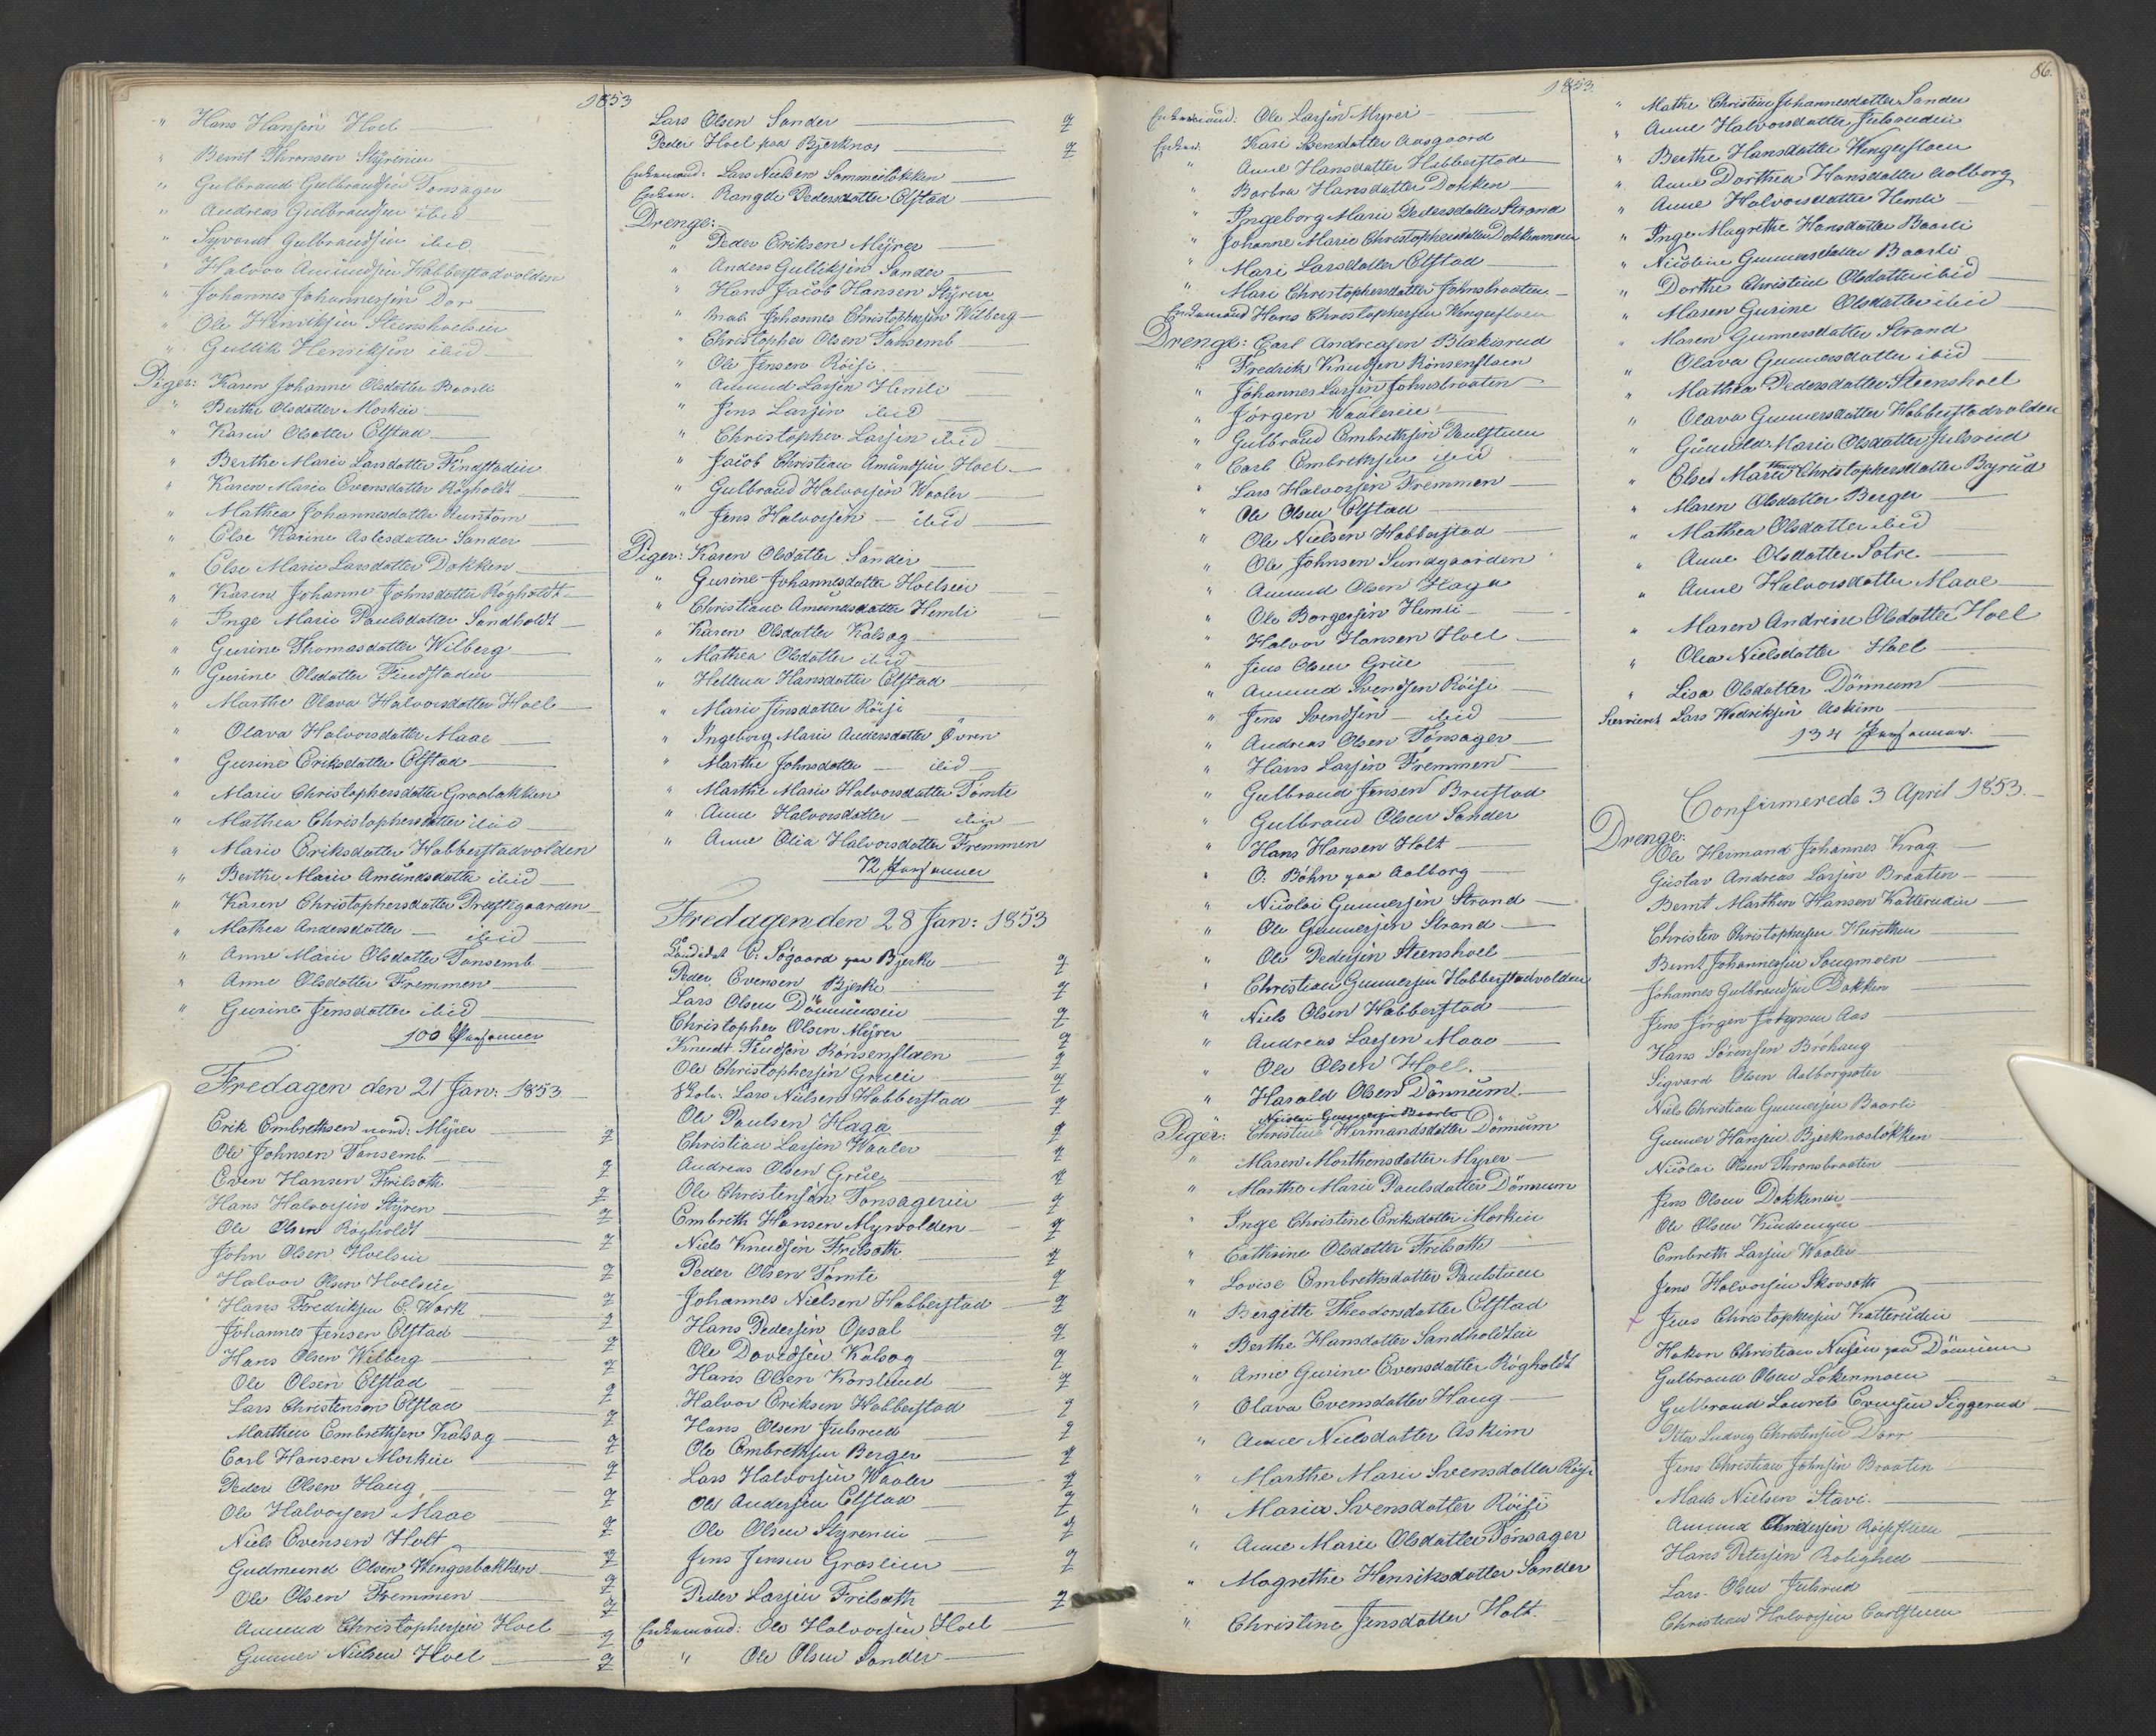 1853
" Hans Hansen Hoel
" Bernt Thronsen Styrenin
" Gulbrand Gulbrandsen Tonsager
" Andreas Gulbrandsen ibid
" Syvort Gulbrandsen ibid
" Halvor Amundsen Habberstadvolden
" Johannes Johannesen Dør
" Ole Henriksen Steenshoelsein
" Gullik Henriksen ibid
Piger: Karen Johanne Olsdatter Baarli
" Berthe Olsdatter Morkin
" Karen Olsdatter Elstad
" Berthe Marie Larsdatter Findstadin
" Karen Marie Evensdatter Rögholdt
" Mathea Johannesdatter Runtom
" Else Karine Aslesdatter Sander
" Else Marie Larsdatter Dokken
" Karen Johanne Johnsdatter Rögholdt
" Inge Marie Paulsdatter Sandholdt
" Gurine Thomasdatter Wilberg
" Gurine Olsdatter Findstadin
" Marthe Olava Halvorsdatter Hoel
" Olava Halvorsdatter Maae
" Gurine Eriksdatter Elstad
" Marie Christophersdatter Graabakken
" Mathea Christophersdatter ibid
" Marie Eriksdatter Habberstadvolden
" Berthe Marie Amundsdatter ibid
" Karen Christophersdatter Præstegaarden
" Mathea Andersdatter — ibid
" Anne Marie Olsdatter Tansemb
" Anne Olsdatter Fremmen
" Gurine Jensdatter ibid
100 Personner
Fredagen den 21 Jan: 1853
Erik Embrethsen nord: Myrer 2
Ole Johnsen Tansemb 2
Even Hansen Frilseth 2
Hans Halvorsen Styren 2
Ole Olsen Rögholdt 2
John Olsen Hoelsin 2
Halvor Olsen Hoelsin 2
Hans Fredriksen E. Wærk 2
Johannes Jensen Elstad 2
Hans Olsen Wilberg 2
Ole Olsen Elstad 2
Lars Christensen Elstad 2
Marthin Embrethsen Kalsæg 2
Carl Hansen Morkin 2
Peder Olsen Haug 2
Ole Halvorsen Maae 2
Niels Evensen Holt 2
Gudmund Olsen Wengerbakken 2
Ole Olsen Fremmen 2
Amund Christophersen Hoel 2
Gunner Nielsen Hoel 2
Lars Olsen Sander 2
Peder Hoel paa Bjerknæs 2
Enkemand: Lars Nielsen Sommerlökken
Enken. Rangdi Pedersdatter Elstad
Drenge:
" Peder Eriksen Myrer
" Anders Gulliksen Sander
" Hans Jacob Hansen Styren
" Johannes Christophersen Wilberg
" Christopher Olsen Tansemb
" Ole Jensen Röisi
" Amund Larsen Himli
" Jens Larsen ibid
" Christopher Larsen ibid
" Jacob Christian Amundsen Hoel
" Gulbrand Halvorsen Waaler
" Jens Halvorsen — ibid
Piger: Karen Olsdatter Sander
" Gurine Johannesdatter Hoelsein
" Christiane Amundsdatter Himli
" Karen Olsdatter Kalsæg
" Mathea Olsdatter ibid
" Hellena Hansdatter Elstad
" Marie Jensdatter Röisi
" Ingeborg Marie Andersdatter Övren
" Marthe Johnsdatter — ibid
" Marthe Marie Halvorsdatter Tömte
" Anne Halvorsdatter — ibid
" Anne Olia Halvorsdatter Fremmen
72 Personner
Fredagen den 28 Jan: 1853
Candidat C. Sögaard paa Bjerke 2
Peder Evensen Bjerke 2
Lars Olsen Dönnumsein 2
Christopher Olsen Myrer 2
Knudt Knudsen Rönsenstaen 2
Ole Christophersen Gruein 2
Skoln. Lars Nielsen Habberstad 2
Ole Paulsen Haga 2
Christian Larsen Waaler 2
Andreas Olsen Grue 2
Ole Christensen Tonsagerin 2
Embreth Hansen Myrvolden 2
Niels Knudsen Frilseth 2
Peder Olsen Tömte 2
Johannes Nielsen Habberstad 2
Hans Pedersen Opsal 2
Ole Davidsen Kalsæg 2
Hans Olsen Korslund 2
Halvor Eriksen Habberstad 2
Hans Olsen Julsrud 2
Ole Embrethsen Berger 2
Lars Halvorsen Waaler 2
Ole Andersen Elstad 2
Ole Olsen Styrenin 2
Jens Jensen Grøslien 2
Peder Larsen Frilseth 2
Enkemand: Ole Halvorsen Hoel
" Ole Olsen Sander
1853
86.
Enkemand: Ole Larsen Myrer
Enken. Kari Bensdatter Aasgaard
" Anne Hansdatter Habberstad
" Barbra Hansdatter Dokken
" Ingeborg Marie Pedersdatter Strand
" Johanne Marie Christophersdatter Dokkenmoen
" Mari Larsdatter Elstad
" Mari Christophersdatter Johnsbraaten
Enkemand Hans Christophersen Wengerstaen
Drenge: Carl Andreasen Blækisrud
" Fredrik Knudsen Rönsenstaen
" Johannes Larsen Johnsbraaten
" Jörgen Waalerein
" Gulbrand Embrethsen Paulstuen
" Carl Embrethsen ibid
" Lars Halvorsen Fremmen
" Ole Olsen Elstad
" Ole Nielsen Habberstad
" Ole Johnsen Sundgaarden
" Amund Olsen Haga
" Ole Borgersen Himli
" Halvor Hansen Hoel
" Jens Olsen Grue
" Amund Svendsen Röisi
" Jens Svendsen — ibid
" Andreas Olsen Tönsager
" Hans Larsen Fremmen
" Gulbrand Jensen Brustad
" Gulbrand Olsen Sander
" Hans Hansen Holt
" O. Böhn paa Aalborg
" Nicolai Gunnersen Strand
" Ole Gunnersen Strand
" Ole Pedersen Steenshoel
" Christian Gunnersen Habberstadvolden
" Niels Olsen Habberstad
" Andreas Larsen Maae
" Ole Olsen Hoel.
" Harald Olsen Dönnum
Nicolai Gunnersen Baarli
Piger: Christine Hermandsdatter Dönnum
" Maren Morthensdatter Myrer
" Marthe Marie Paulsdatter Dönnum
" Inge Christine Eriksdatter Morkin
" Cathrine Olsdatter Frilseth
" Lovise Embrethsdatter Paulstuen
" Birgitte Theodorsdatter Elstad
" Berthe Hansdatter Sandholdtein
" Anne Gurine Evensdatter Rögholdt
" Olava Evensdatter Haug
" Anne Nielsdatter Askim
" Marthe Marie Svensdatter Röisi
" Maria Svensdatter Röisi
" Anne Marie Olsdatter Tönsager
" Magrethe Henriksdatter Sander
" Christine Jensdatter Holt
" Mathe Christine Johannesdatter Sander
" Anne Halvorsdatter Julsrudin
" Berthe Hansdatter Wengerstaen
" Anne Dorthea Hansdatter Aalborg
" Anne Halvorsdatter Himli
" Inge Magrethe Hansdatter Baarli
" Nicoline Gunnersdatter Baarli
" Dorthe Christine Olsdatter ibid
" Maren Gurine Olsdatter ibid
" Maren Gunnersdatter Strand
" Olava Gunnersdatter ibid
" Mathea Pedersdatter Steenshoel
" Olava Gunnersdatter Habberstadvolden
" Gunnild Marie Olsdatter Julsrud
" Else Marthe Christophersdatter Byrud
" Maren Olsdatter Berger
" Mathea Olsdatter ibid
" Anne Olsdatter Sætre
" Anne Halvorsdatter Maae
" Maren Andrine Olsdatter Hoel
" Olea Nielsdatter Hoel
" Lisa Olsdatter Dönnum
Lars Hedriksen Askim
134 Personner
Confirmerede 3 April 1853.
Drenge:
Ole Hermand Johannes Krag
Gustav Andreas Larsen Braaten
Bernt Marthin Hansen Katterudin
Christen Christophersen
Bernt Johannesen Saugmoen
Johannes Gulbrandsen Dokken
Jens Jörgen Johnsen Aas
Hans Sörensen Bröhaug
Sigvard Olsen Aalborgsæter
Niels Christian Gunnersen Baarli
Gunner Hansen Bjerknæslökken
Nicolai Olsen Thronsbraaten
Jens Olsen Dokkenin
Ole Olsen
Embreth Larsen Waaler
Jens Halvorsen Skovseth
x Jens Christophersen Katterudin
Hakon Christian Nilsen paa Dönnum
Gulbrand Olsen Lökenmoen
Gulbrand Laurets Evensen Siggerud
Otto Ludvig Christensen Dørr
Jens Christian Johnsen Braaten
Mads Nielsen Stavi.
Amund Andersen Röisistuen
Hans Petersen Rolighed
Lars Olsen Julsrud
Christian Halvorsen Carlstuen